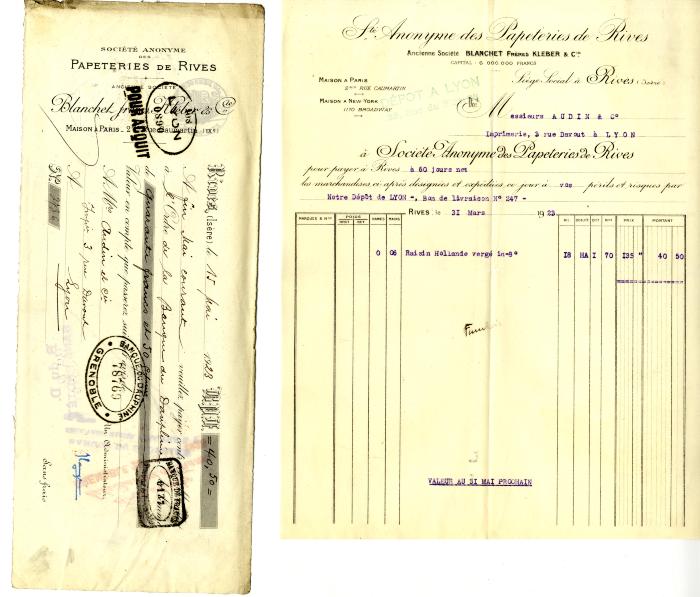 SOCIÉTÉ ANONYME
DES
PAPETERIES DE RIVES
ANCIENNE SOCIÉTÉ
Blanchet frères Kléber & Cie
MAISON A PARIS
POUR ACQUIT
Rives, (Isère) le 15 Mai 1923
= 40,50 =
A fin Mai courant, veuillez payer
à l'Ordre de la Banque du Dauphiné
de quarante francs et 50 c
Valeur en compte que passerez
A Mrs Audin et Cie
Impr 3 rue Davout
Lyon
Un Administrateur
Sans frais
BANQUE DU DAUPHINÉ
GRENOBLE
BANQUE DE FRANCE
Sté Anonyme des Papeteries de Rives
Ancienne Société BLANCHET FRÈRES KLEBER & Cie
CAPITAL : 6.000.000 FRANCS
MAISON A PARIS
2bis RUE CAUMARTIN
MAISON A NEW-YORK
1170 BROADWAY
Siège Social à Rives (Isère)
DÉPOT A LYON
Messieurs AUDIN & C°
Imprimerie, 3 rue Davout à LYON
à Société Anonyme des Papeteries de Rives
pour payer à Rives à 60 jours net
les marchandises ci après désignées et expédiées ce jour à vos périls et risques par
Notre Dépôt de LYON -, Bon de livraison N° 247 -
RIVES, le 31 Mars 1923
MARQUES & Nos POIDS BRUT NET RAMES MAINS KIL DOIGT QTÉ Nos PRIX MONTANT
0 06 Raisin Hollande vergé in-8° 18 HA I 70 135 " 40 50
VALEUR AU 31 MAI PROCHAIN